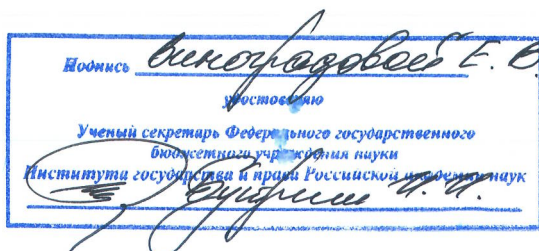 Подпись Виноградовой Е. В.
удостоверяю
Ученый секретарь Федерального государственного
бюджетного учреждения науки
Института государства и права Российской академии наук